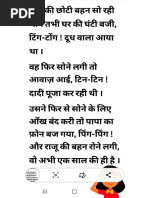 की छोटी बहन सो
तभी घर की घंटी बजी,
टिंग-टोंग ! दूध वाला आया
था ।
वह फिर सोने लगी तो
आवाज़ आई, टिन-टिन !
दादी पूजा कर रही थी ।
उसने फिर से सोने के लिए
आँख बंद करी तो पापा का
फ़ोन बज गया, पिंग-पिंग !
और राजू की बहन रोने लगी,
वो अभी एक साल की ही है ।